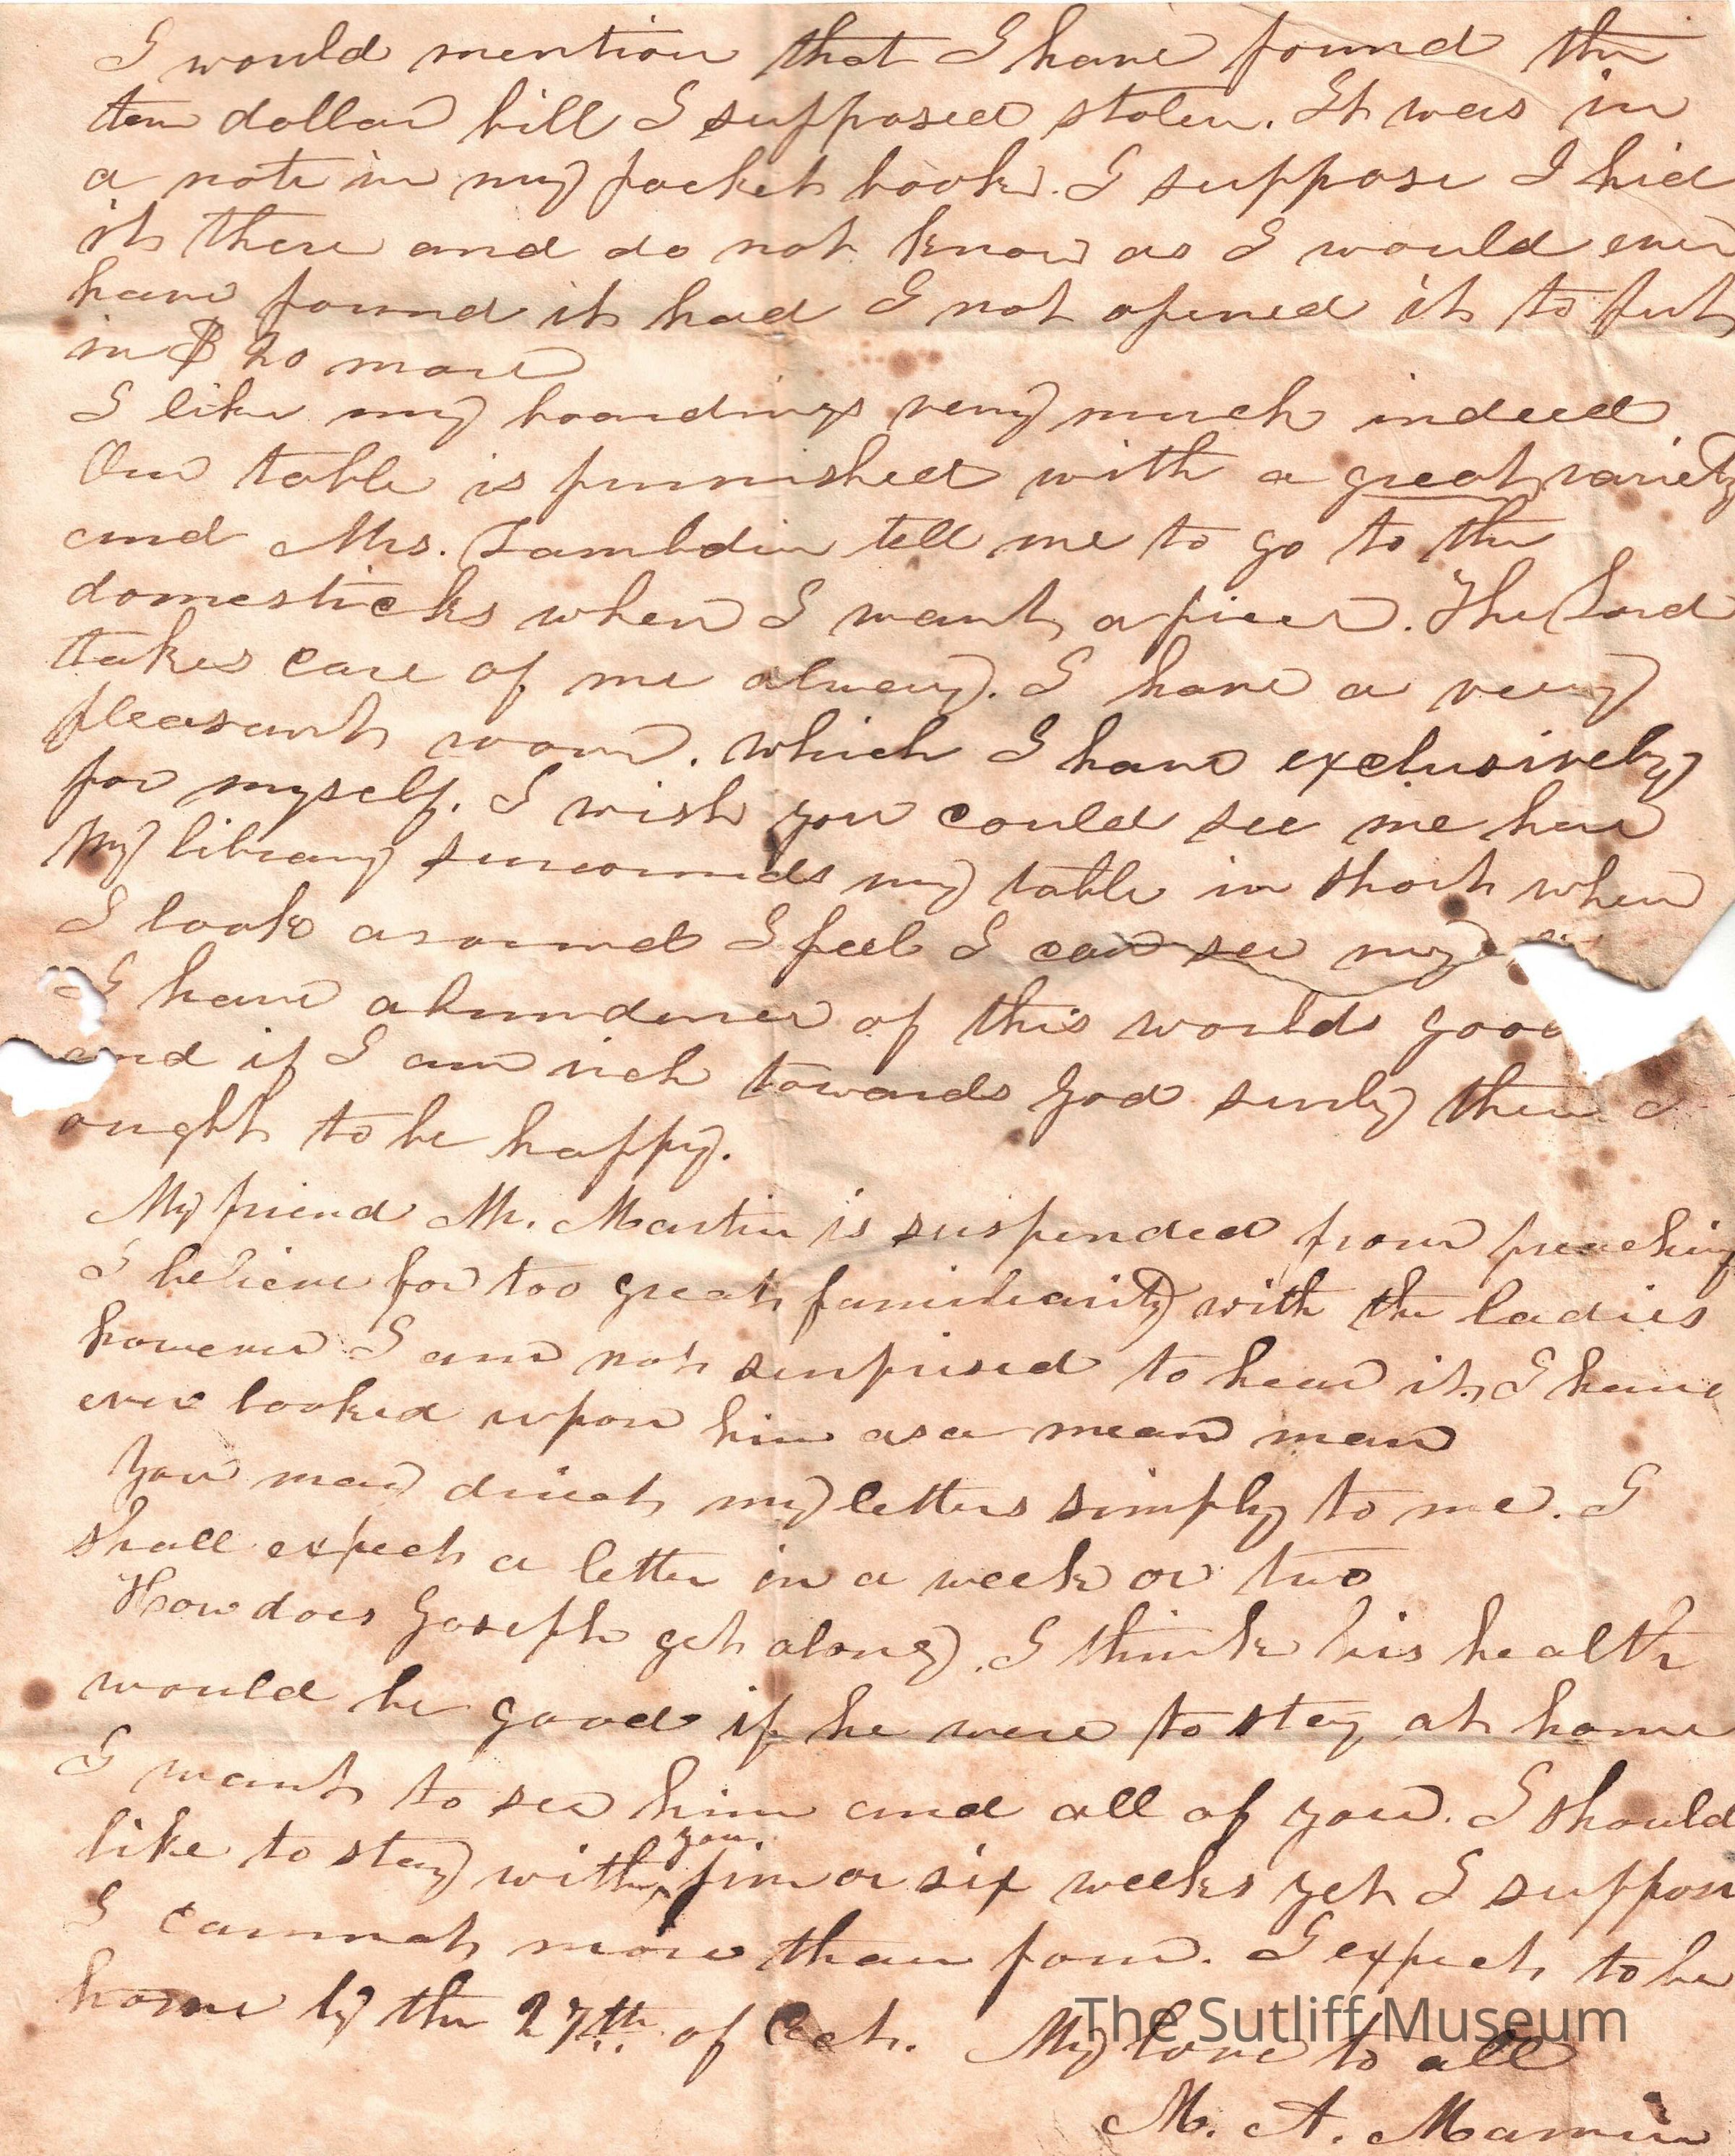 I would mention that I have found the
ten dollar bill I supposed stolen. It was in
a note in my pocket book. I suppose I hid
it there and do not know as I would ever
have found it had I not opened it to put
in $20 more
I like my boardings very much indeed
Our table is furnished with a great variety
and Mrs. Lambdin tell me to go to the
domesticks when I want a piece. The Lord
takes care of me alway. I have a very
pleasant room. which I have exclusively
for myself. I wish you could see me here
My library surrounds my table in short when
I look around I feel I can see my
I have abundance of this worlds good
and if I am rich towards God surely then I
ought to be happy.
My friend Mr. Martin is suspended from preaching
I believe for too great familiarity with the ladies
however I am not surprised to hear it, I have
ever looked upon him as a mean man
You may direct my letters simply to me. I
shall expect a letter in a week or two
How does Joseph get along. I think his health
would be good if he were to stay at home
I want to see him and all of you. I should
like to stay with you five or six weeks yet I suppose
I cannot more than four. I expect to be
home by the 27th. of Oct. My love to all
M. A.
The Sutliff Museum